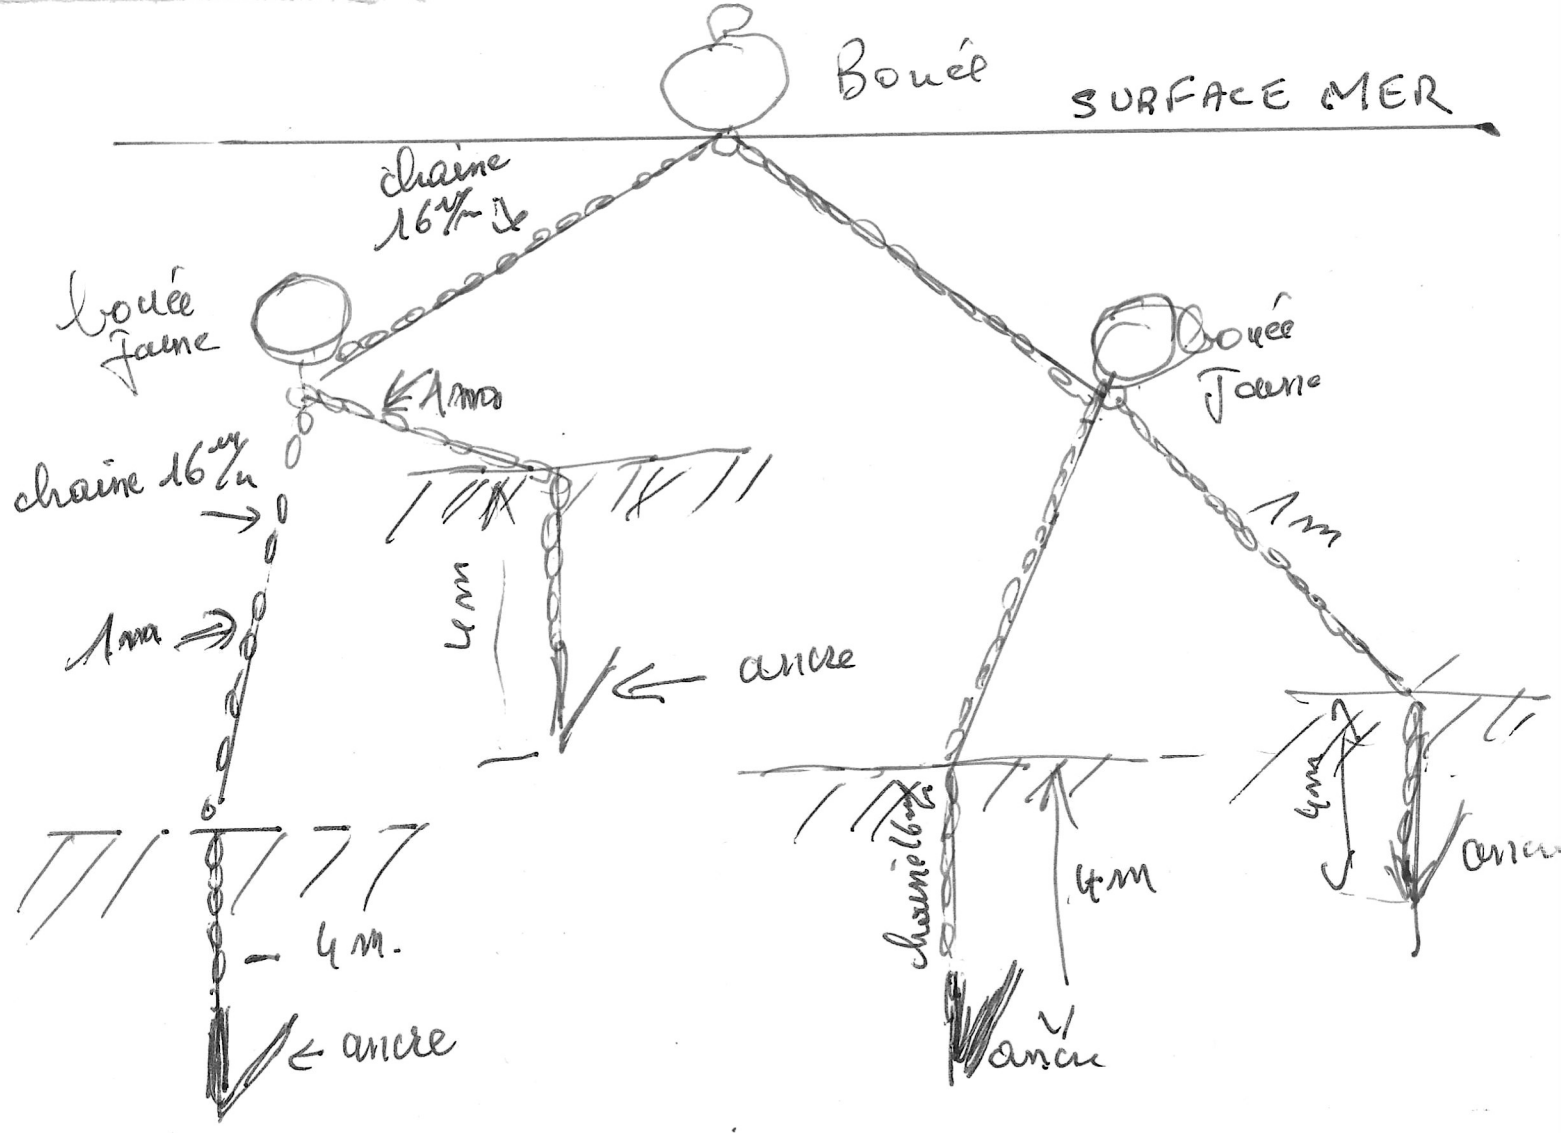 Bouée
SURFACE MER
chaine
16 m/m
bouée
Jaune
bouée
Jaune
1m
chaine 16 m/m
1m
1m
4m
ancre
4m
ancre
chaine 16 m/m
4m
4m.
ancre
ancre